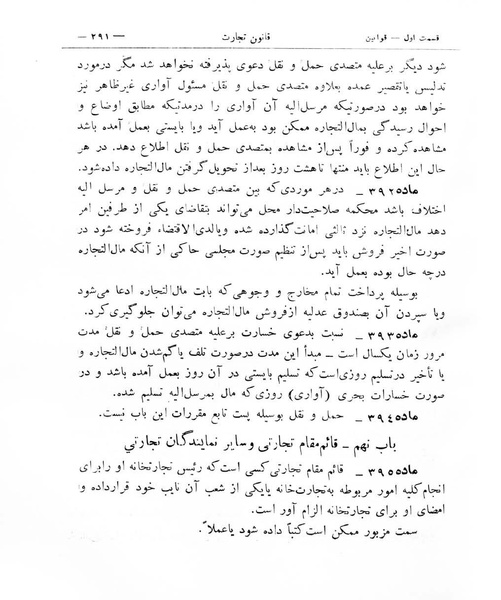 قسمت اول — قوانین قانون تجارت — ۲۹۱ —
شود دیگر برعلیه متصدی حمل و نقل دعوی پذیرفته نخواهد شد مگر درمورد
تدلیس یاتقصیر عمده بعلاوه متصدی حمل و نقل مسئول آواری غیرظاهر نیز
خواهد بود درصورتیکه مرسل‌الیه آن آواری را درمدتیکه مطابق اوضاع و
احوال رسیدگی بمال‌التجاره ممکن بود بعمل آید ویا بایستی بعمل آمده باشد
مشاهده کرده و فوراً پس‌از مشاهده بمتصدی حمل و نقل اطلاع دهد. در هر
حال این اطلاع باید منتها تاهشت روز بعداز تحویل گرفتن مال‌التجاره داده‌شود.
ماده۳۹۲ـ درهر موردی که بین متصدی حمل و نقل و مرسل الیه
اختلاف باشد محکمه صلاحیت‌دار محل می‌تواند بتقاضای یکی از طرفین امر
دهد مال‌التجاره نزد ثالثی امانت گذارده شده ویالدی‌الاقتضاء فروخته شود در
صورت اخیر فروش باید پس‌از تنظیم صورت مجلسی حاکی از آنکه مال‌التجاره
درچه حال بوده بعمل آید.
بوسیله پرداخت تمام مخارج و وجوهی که بابت مال‌التجاره ادعا می‌شود
ویا سپردن آن بصندوق عدلیه ازفروش مال‌التجاره می‌توان جلوگیری کرد.
ماده۳۹۳ـ نسبت بدعوی خسارت برعلیه متصدی حمل و نقل مدت
مرور زمان یکسال است ـ مبدأ این مدت درصورت تلف یاگم‌شدن مال‌التجاره و
یا تأخیر درتسلیم روزی‌است که تسلیم بایستی در آن روز بعمل آمده باشد و در
صورت خسارات بحری (آواری) روزی که مال بمرسل‌الیه تسلیم شده.
ماده۳۹٤ـ حمل و نقل بوسیله پست تابع مقررات این باب نیست.
باب نهم ـ قائم‌مقام تجارتی وسایر نمایندگان تجارتی
ماده۳۹۵ـ قائم مقام تجارتی کسی است که رئیس تجارتخانه او رابرای
انجام کلیه امور مربوطه به‌تجارت‌خانه یایکی از شعب آن نایب خود قرارداده و
امضای او برای تجارتخانه الزام آور است.
سمت مزبور ممکن است کتباً داده شود یاعملاً.